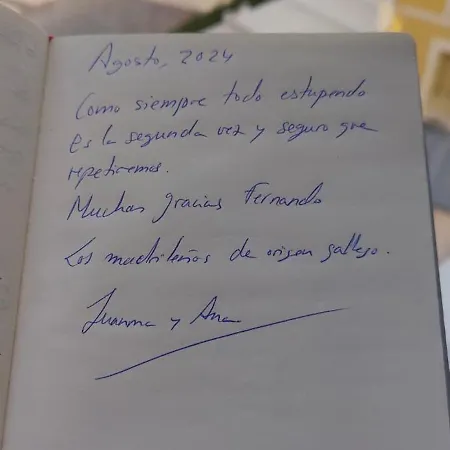 Agosto, 2024
Como siempre todo estupendo
es la segunda vez y seguro que
repetiremos.
Muchas gracias Fernando
Los madrileños de origen gallego.
Juanma y Ana